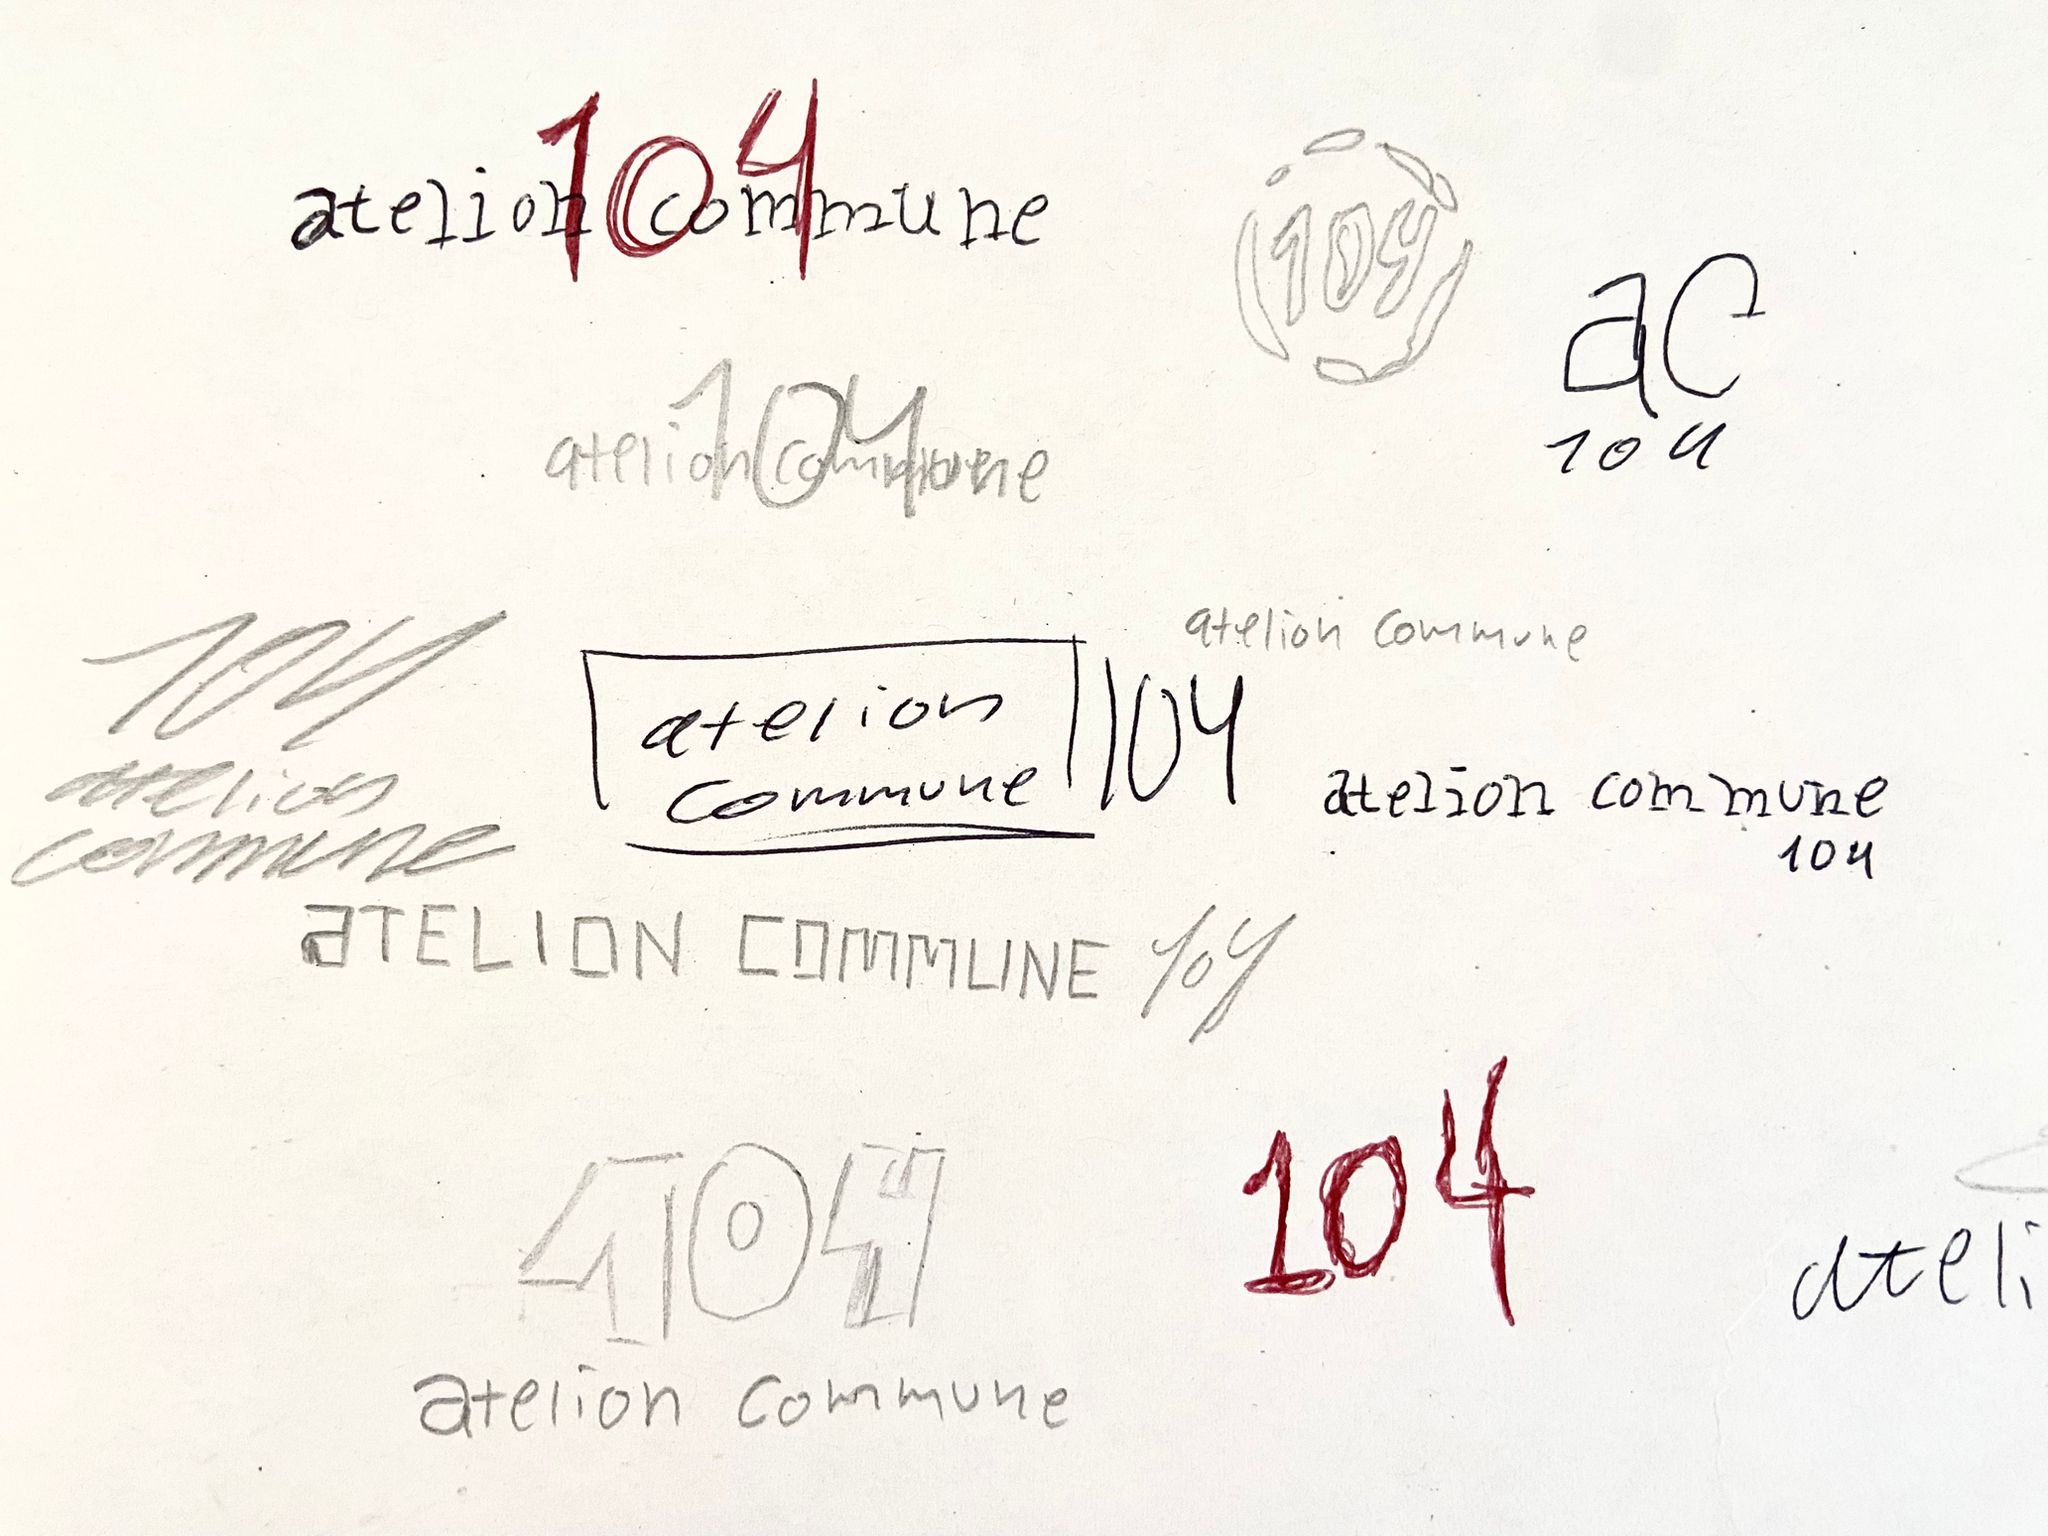 104
atelion commune
104
ac
104
104
atelion commune
104
atelion
commune
atelion
commune
104
atelion commune
atelion commune
104
ATELION COMMUNE 104
104
atelion commune
104
ateli